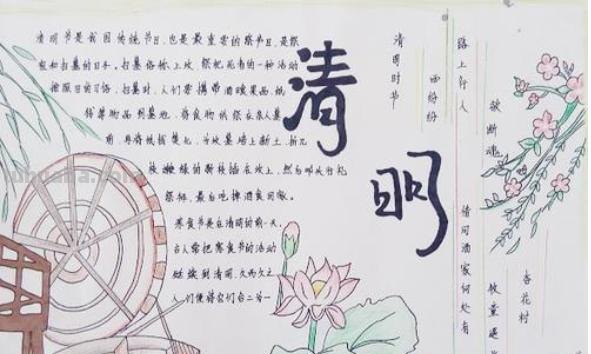 清明节是我国传统节日,也是最重要的祭节日,是祭
祖和扫墓的日子。扫墓俗称上坟,祭祀死者的一种活动
按照旧的习俗,扫墓时,人们要携带酒食果品、纸
钱等物品到墓地,将食物供祭在亲人墓
前,再将纸钱焚化,为坟墓培上新土,折几
枝嫩绿的新枝插在坟上,然后叩头行礼
祭拜,最后吃掉酒食回家。
寒食节是在清明的前一天,
古人常把寒食节的活动
延续到清明,久而久之
人们便将它们合二为一
清
明
清明时节
雨纷纷
路上行人
欲断魂
借问酒家何处有
牧童遥
杏花村